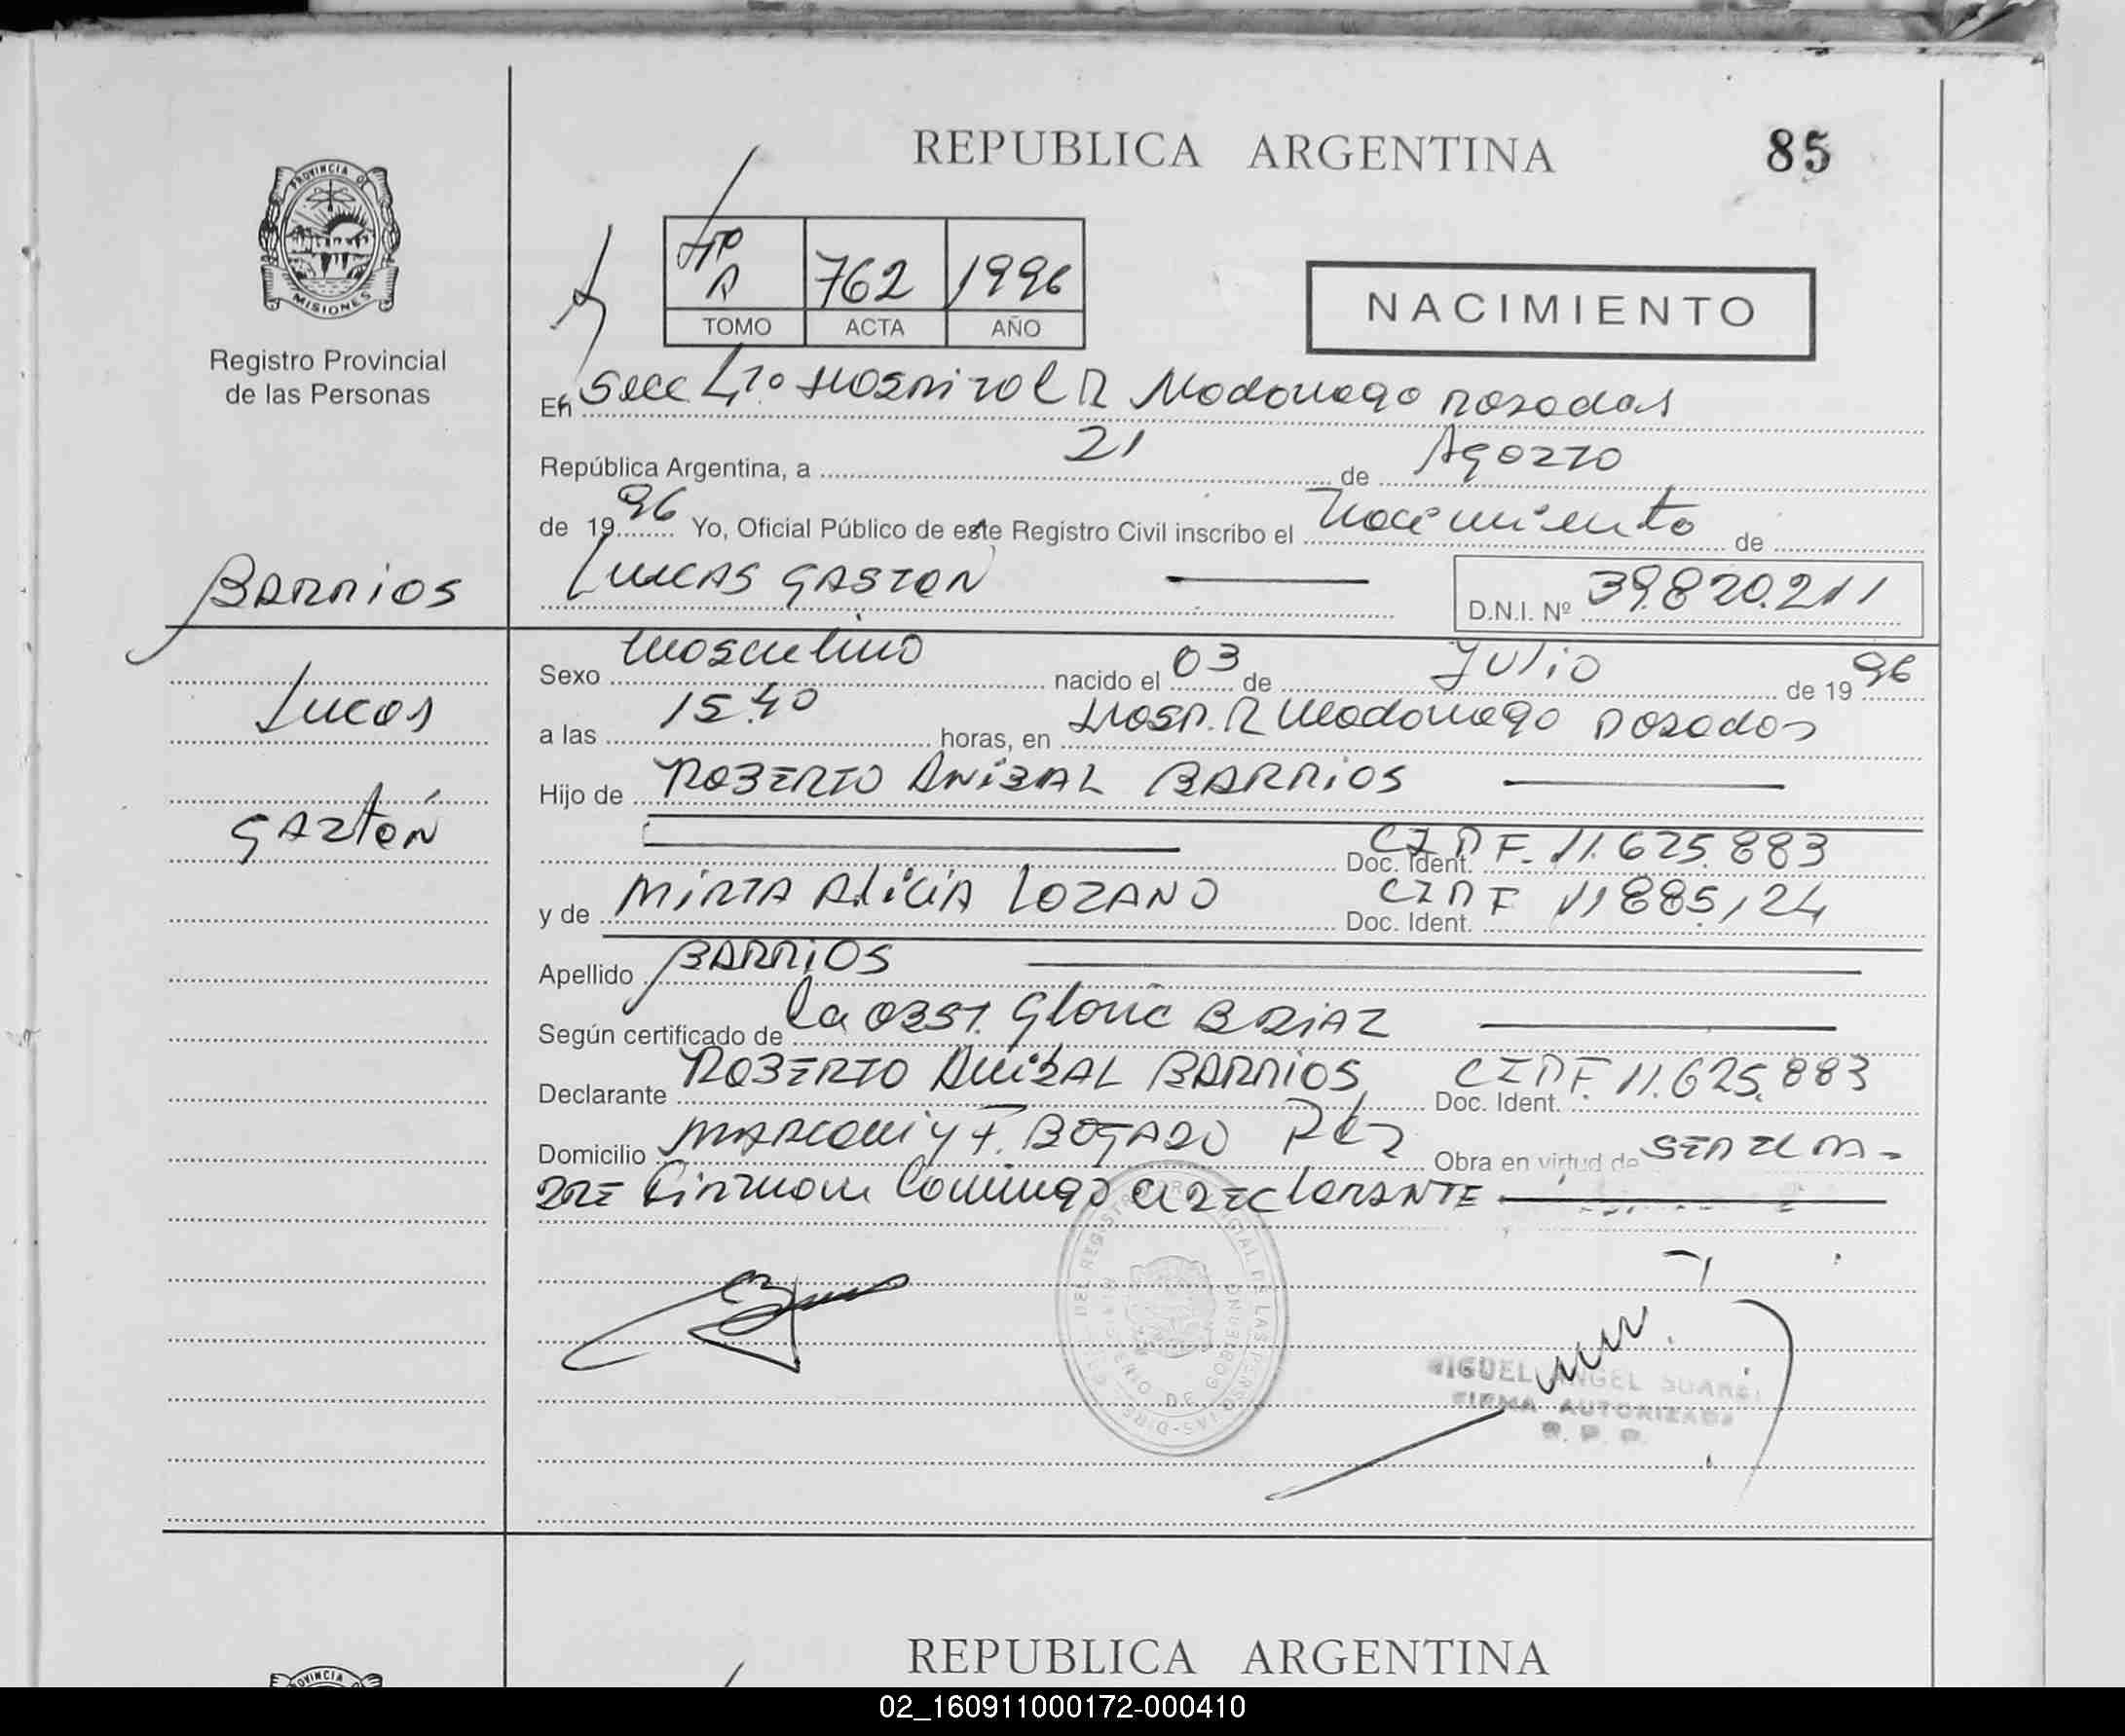 REPUBLICA ARGENTINA
85
PROVINCIA DE
MISIONES
Registro Provincial
de las Personas
A 762 1996
TOMO ACTA AÑO
NACIMIENTO
En Secc 4ta Hospital R Madariaga Posadas
República Argentina, a 21 de Agosto
de 1996 Yo, Oficial Público de este Registro Civil inscribo el Nacimiento de
BARRIOS
LUCAS GASTON D.N.I. Nº 39.820.211
Lucas
Gastón
Sexo Masculino nacido el 03 de Julio de 1996
a las 15.40 horas, en Hosp. R Madariaga Posadas
Hijo de ROBERTO ANIBAL BARRIOS
Doc. Ident. CIPF. 11.625.883
y de MIRTA ALICIA LOZANO Doc. Ident. CIPF
Apellido BARRIOS
Según certificado de la OBST. Gloria B DIAZ
Declarante ROBERTO ANIBAL BARRIOS Doc. Ident. CIPF. 11.625.883
Domicilio MARCONI Y F. BOGADO Obra en virtud de SER EL PA-
DRE Firman Conmigo el DECLARANTE
MIGUEL ANGEL
FIRMA AUTORIZADA
R. P. P.
REPUBLICA ARGENTINA
02_160911000172-000410